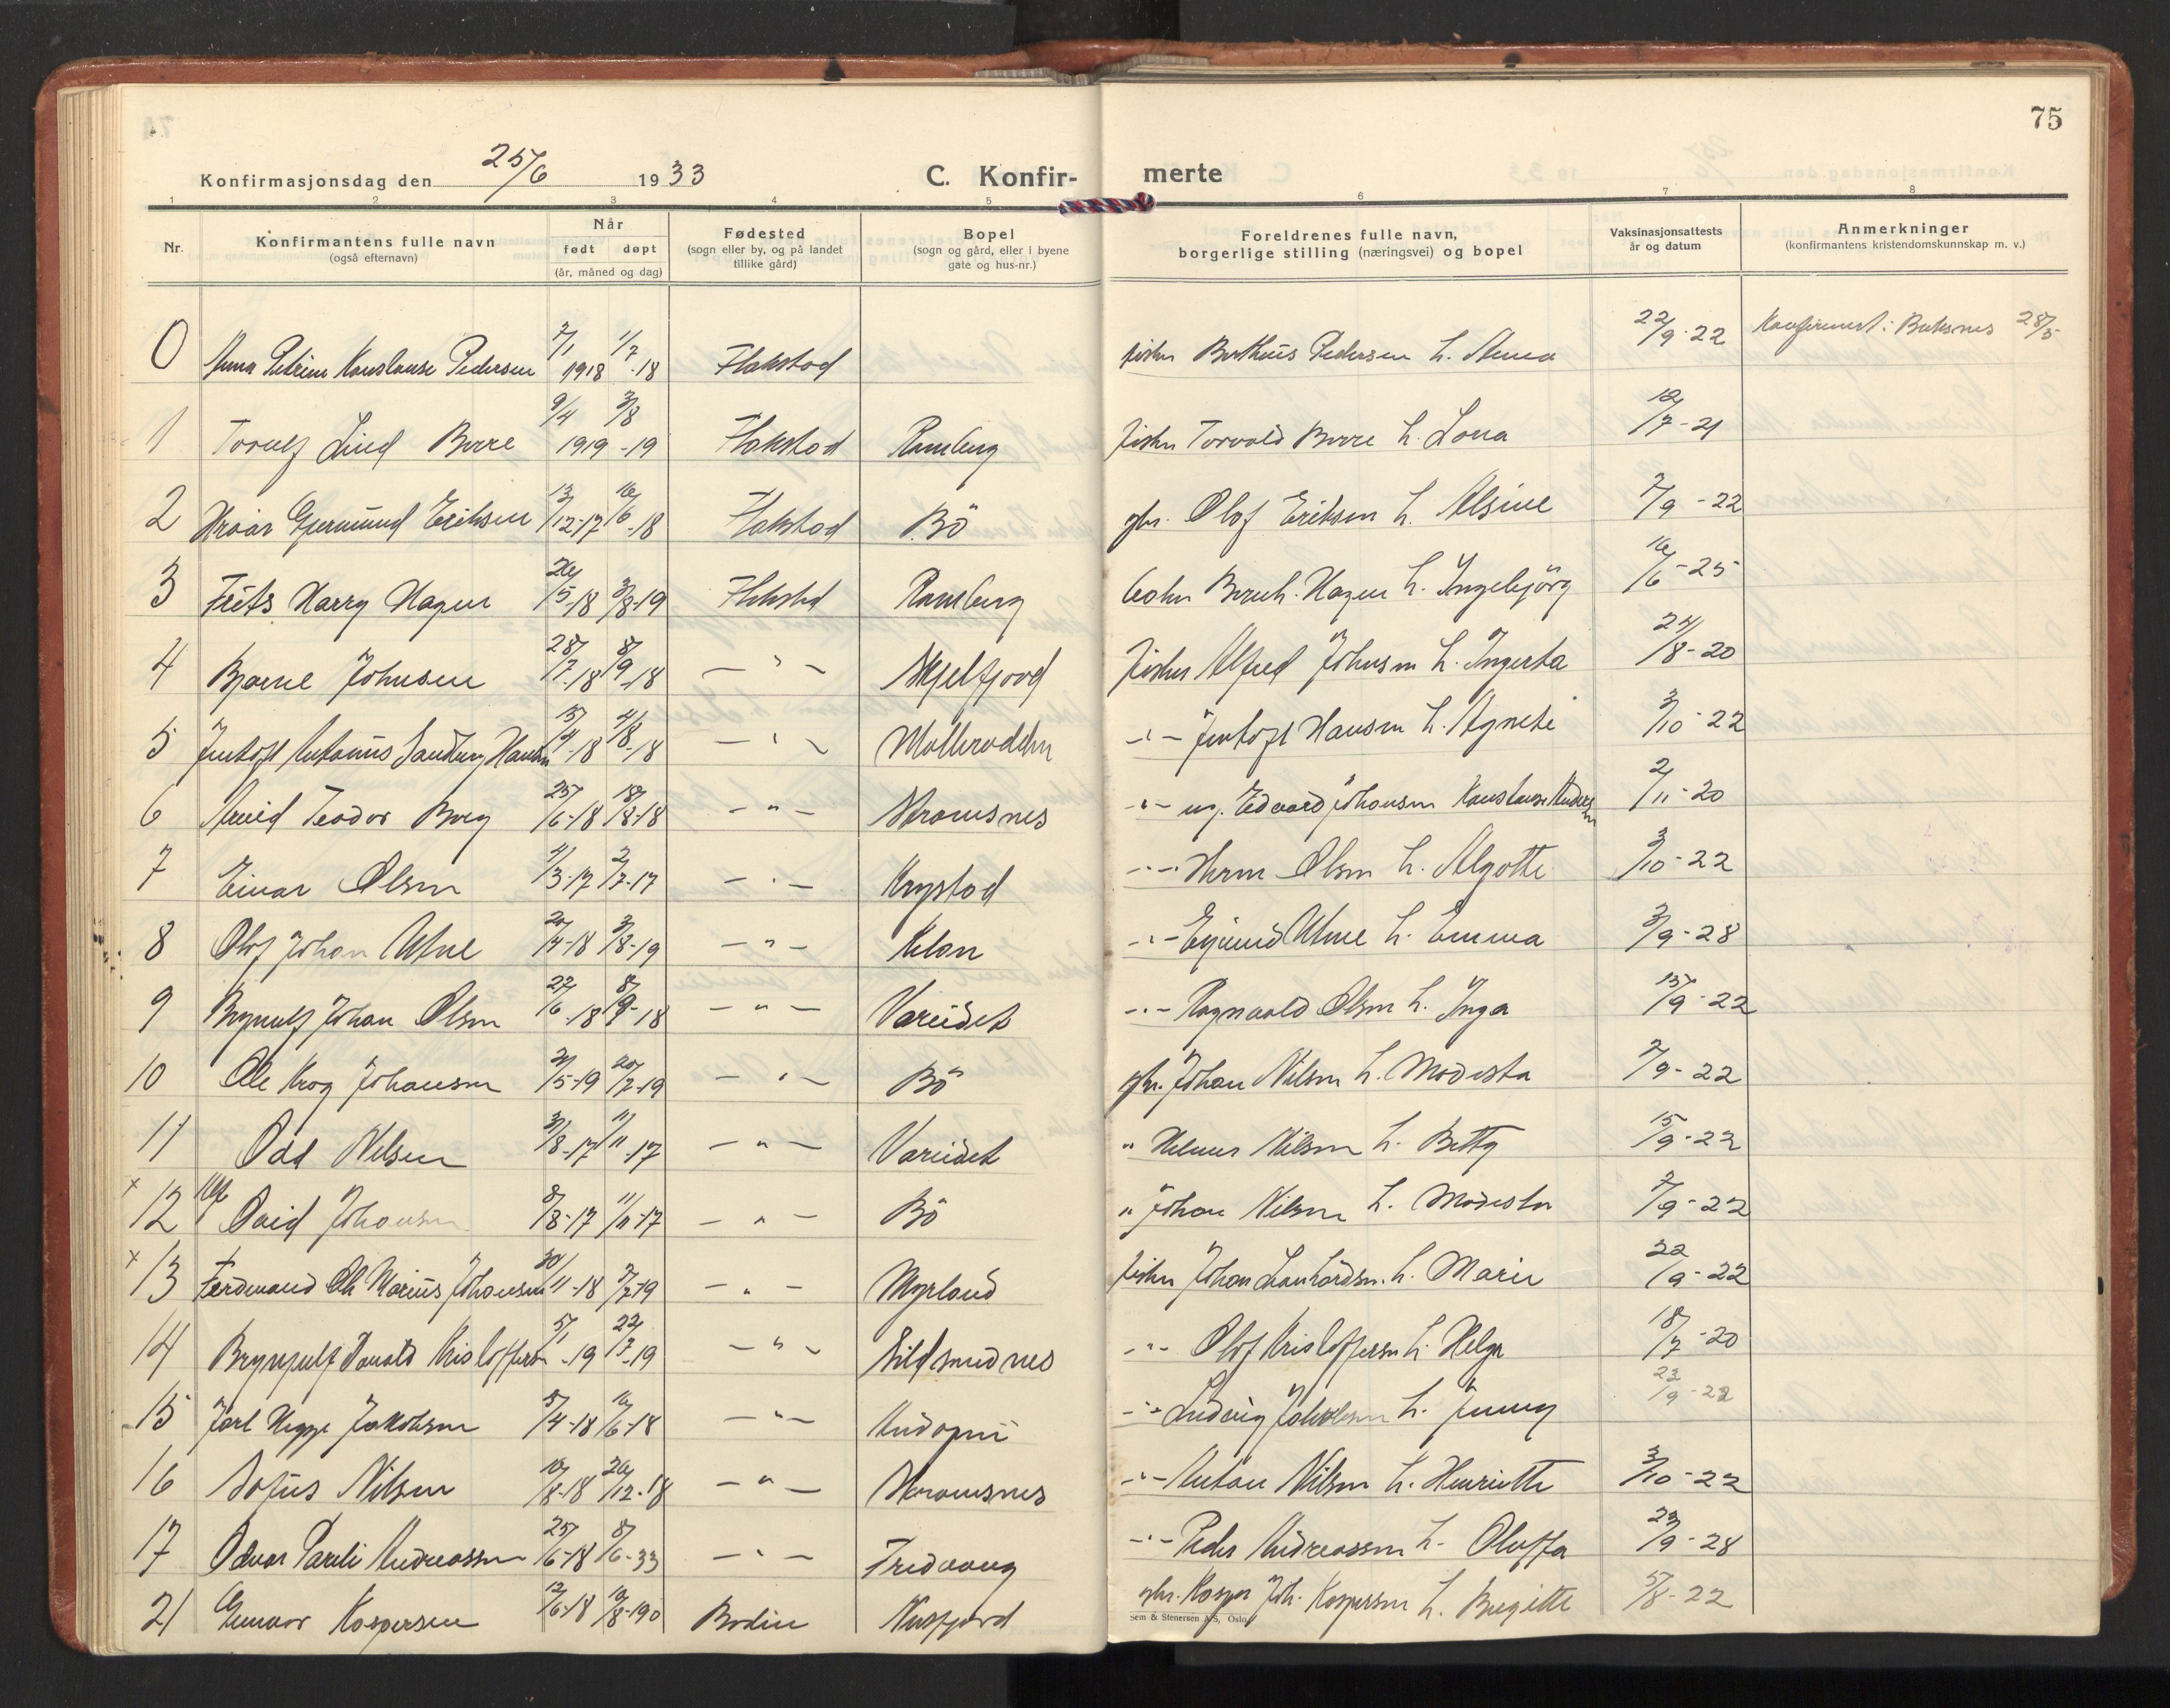 75
Konfirmasjonsdag den 25/6 1933 C. Konfir- merte
1 2 3 4 5 6 7 8
Nr. Konfirmantens fulle navn (også efternavn) Når født døpt (år, måned og dag) Fødested (sogn eller by, og på landet tillike gård) Bopel (sogn og gård, eller i byene gate og hus-nr.) Foreldrenes fulle navn, borgerlige stilling (næringsvei) og bopel Vaksinasjonsattests år og datum Anmerkninger (konfirmantens kristendomskunnskap m. v.)
0 Anna Petrine Konstanse Pedersen 7/1 1918 1/7-18 Flakstad fisker Berthius Pedersen h. Anna 22/9-22 Konfirmert i Buksnes 28/5
1 Torulf Lind Borre 9/4 1919 3/8-19 Flakstad Ramberg fisker Torvald Borre h. Lona 12/7-21
2 Hroar Gjermund Eriksen 13/12-17 16/6-18 Flakstad Bö gbr. Olaf Eriksen h. Alsine 7/9-22
3 Frits Harry Hagen 26/5-18 3/8-19 Flakstad Ramberg Bernh. Hagen h. Ingebjörg 16/6-25
4 Bjarne Johnsen 28/7-18 8/9-18 - " - Skjelfjord fisker Alfred Johnsen h. Ingerta 24/8-20
5 Jentoft Antonius Sandberg Hansen 15/4-18 4/8-18 - " - Möllerodden - " - Jentoft Hansen h. Agnete 3/10-22
6 Arvid Teodor Borg 25/6-18 18/8-18 - " - Stromsnes - " - ug. Edvard Johansen Konstanse Andersen 2/11-20
7 Einar Olsen 4/3-17 2/7-17 - " - Krystad - " - Herm Olsen h. Algotte 3/10-22
8 Olaf Johan Utne 20/4-18 3/8-19 - " - Kilan - " - Ejvind Utne h. Emma 3/9-28
9 Brynulf Johan Olsen 22/6-18 8/9-18 - " - Vareidet - " - Ragnvald Olsen h. Inga 15/9-22
10 Ole Krog Johansen 21/5-19 20/7-19 - " - Bö gbr. Johan Nilsen h. Modesta 7/9-22
11 Odd Nilsen 31/8-17 11/11-17 - " - Vareidet " Helmer Nilsen h. Betty 15/9-22
x 12 Arvid Johansen 8/8-17 11/11-17 - " - Bö " Johan Nilsen h. Modesta 7/9-22
x 13 Ferdinand Ole Marius Johansen 30/11-18 2/2-19 - " - Myrland fisker Johan Leonhardsen h. Marie 22/9-22
14 Brynjulf Harald Kristoffersen 5/1-19 22/3-19 - " - Sildsmidnes - " - Olaf Kristoffersen h. Helga 18/7-20
15 Jarl Hegge Jakobsen 5/4-18 16/6-18 - " - Andopni - " - Ludvig Jakobsen h. Jenny 22/9-22
16 Sofus Nilsen 10/8-18 26/12-18 - " - Stromsnes - " - Anton Nilsen h. Henriette 3/10-22
17 Odvar Pareli Andreassen 25/6-18 8/6-33 - " - Fredvang - " - Peder Andreassen h. Oluffa 23/9-28
21 Gunnar Kaspersen 12/6-18 10/8-190 Bodin Nusfjord gbr. Kasper Joh. Kaspersen h. Bergitte 5/8-22
Sem & Stenersen A/S, Oslo